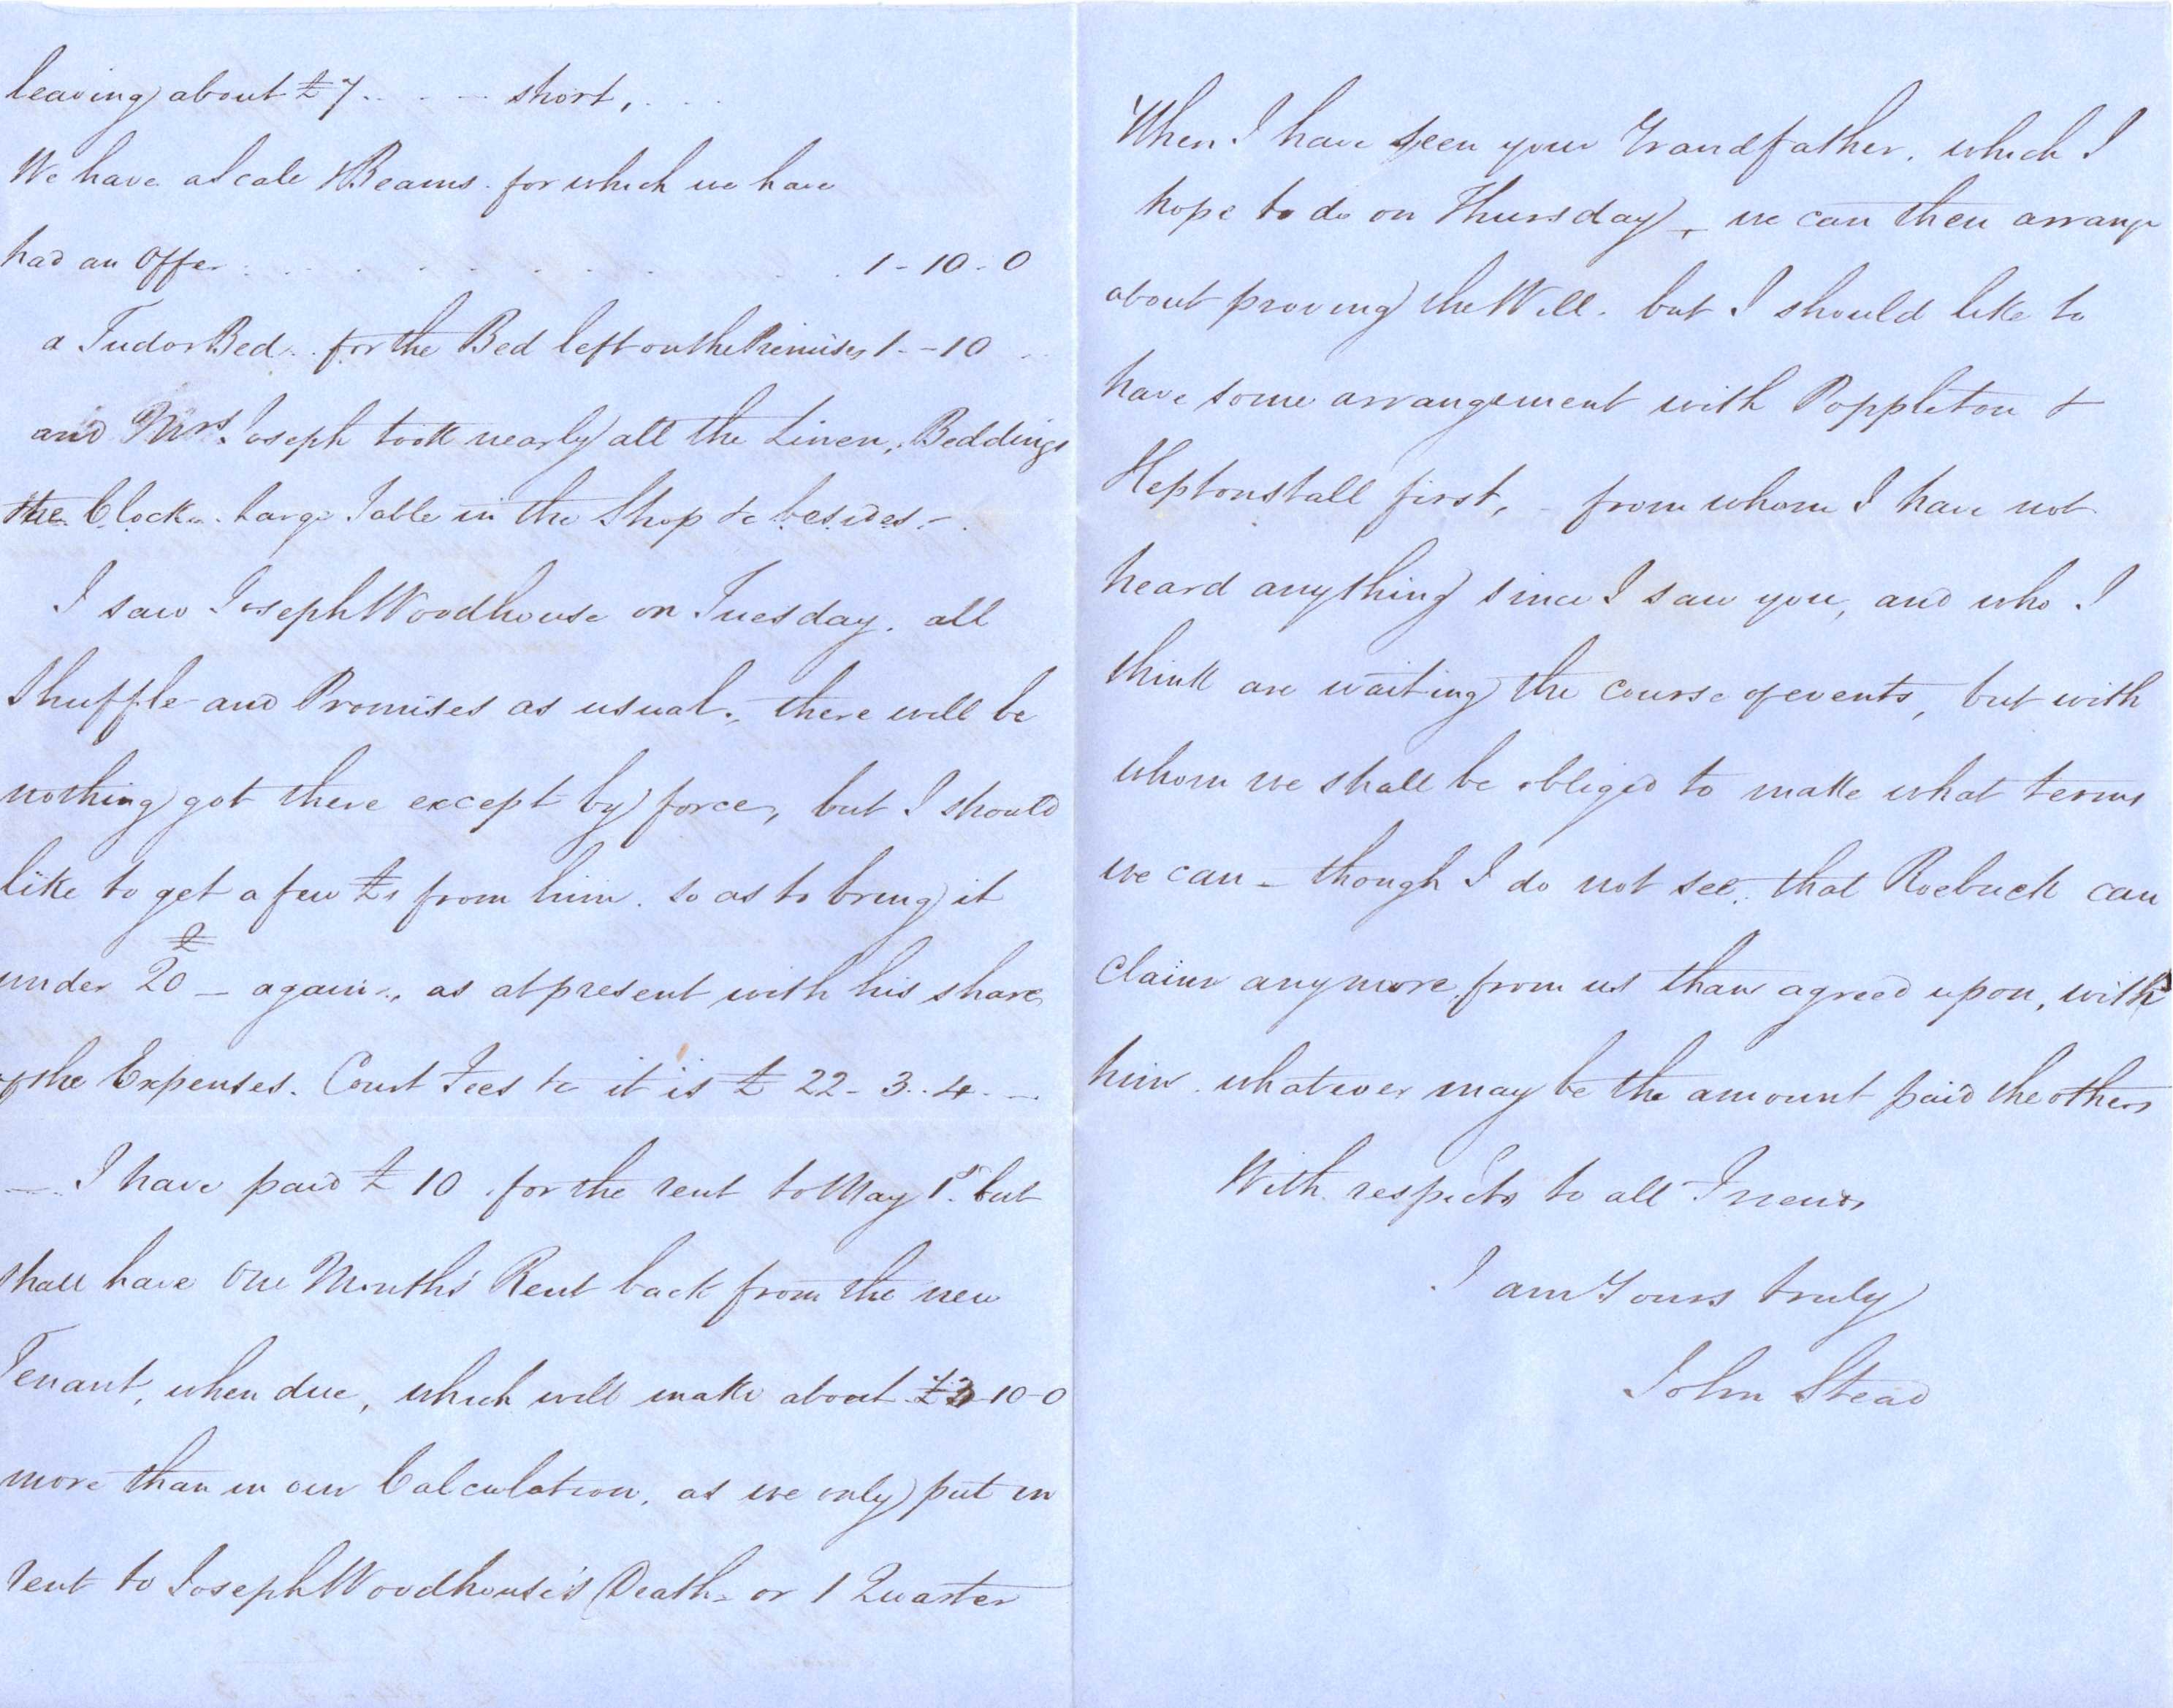 leaving about £7 . . - - short, . . .
We have a Scale & Beams. for which we have
had an Offer . . . . . . . . . . 1-10-0
a Tudor Bed. for the Bed left on the Premises 1--10 ..
and Mrs Joseph took nearly all the Linen, Beddings
the Clock. large Table in the Shop &c besides.-
I saw Joseph Woodhouse on Tuesday. all
Shuffle and Promises as usual. there will be
nothing got there except by force, but I should
like to get a few £s from him. so as to bring it
under £20 - again, as at present with his share
of the Expenses. Court Fees &c it is £ 22-3..4. -
- I have paid £10. for the rent to May 1st. but
shall have One Month's Rent back from the new
Tenant, when due, which will make about £3-10-0
more than in our Calculation, as we only put in
rent to Joseph Woodhouse's Death- or 1 Quarter
When I have seen your Grandfather. which I
hope to do on Thursday, we can then arrange
about proving the Will. but I should like to
have some arrangement with Poppleton &
Heptonstall first, - from whom I have not
heard anything since I saw you, and who I
think are waiting the course of events, but with
whom we shall be obliged to make what terms
we can - though I do not see. that Roebuck can
claim anymore from us than agreed upon, with
him. whatever may be the amount paid the others
With respects to all Friends
I am Yours truly
John Stead